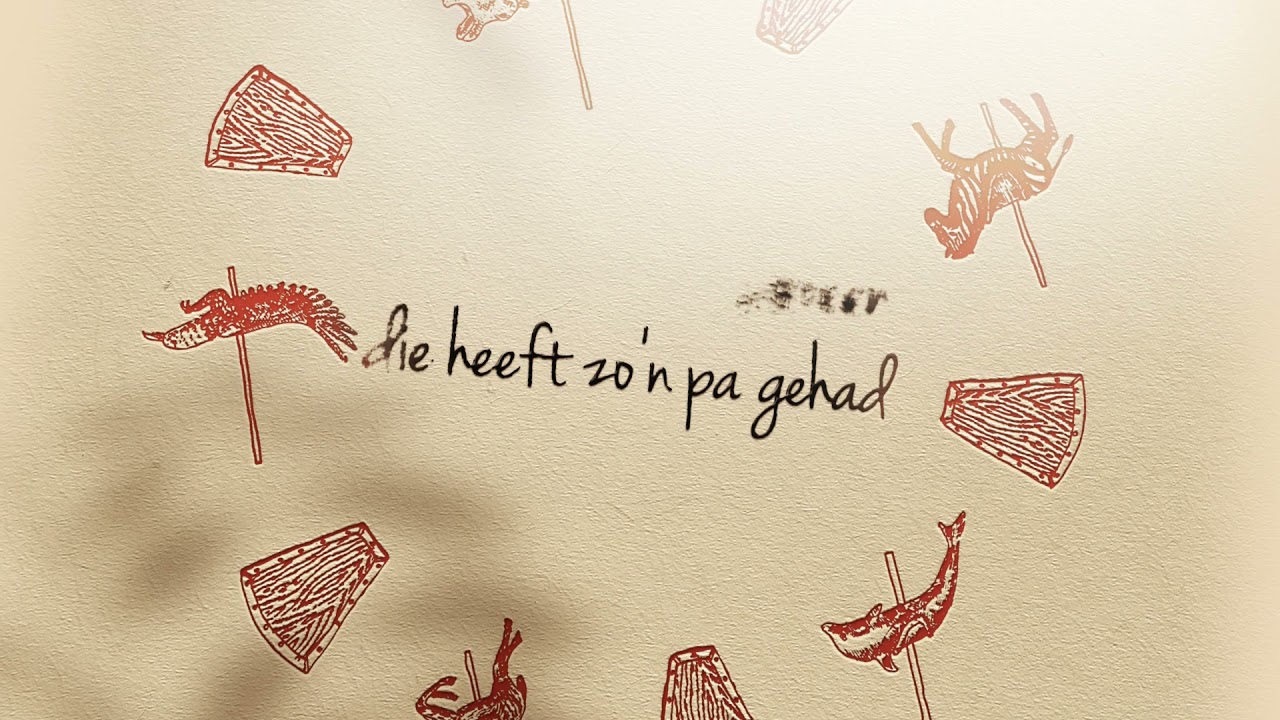 die heeft zo'n pa gehad